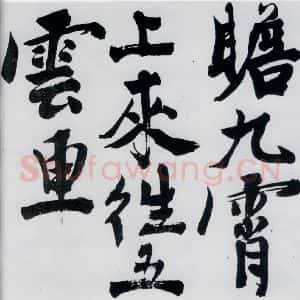 瞻九霄
上來往五
雲車
Shufawang.CN